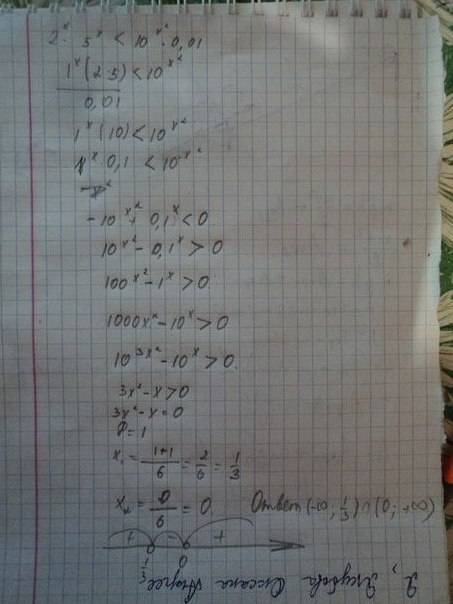 2ˣ · 5ˣ < 10ˣ² · 0,01
1ˣ(2·5) < 10ˣ²
0,01
1ˣ(10) < 10ˣ²
1ˣ 0,1 < 10ˣ²
-10ˣ² + 0,1ˣ < 0
10ˣ² - 0,1ˣ > 0
100ˣ² - 1ˣ > 0
1000ˣ² - 10ˣ > 0
10³ˣ² - 10ˣ > 0.
3x² - x > 0
3x² - x = 0
D = 1
x₁ = 1+1/6 = 2/6 = 1/3
x₂ = 0/6 = 0. Ответ (-∞; 1/3) ∪ (0; +∞)
+ - +
1/3 0
Я, Оксана